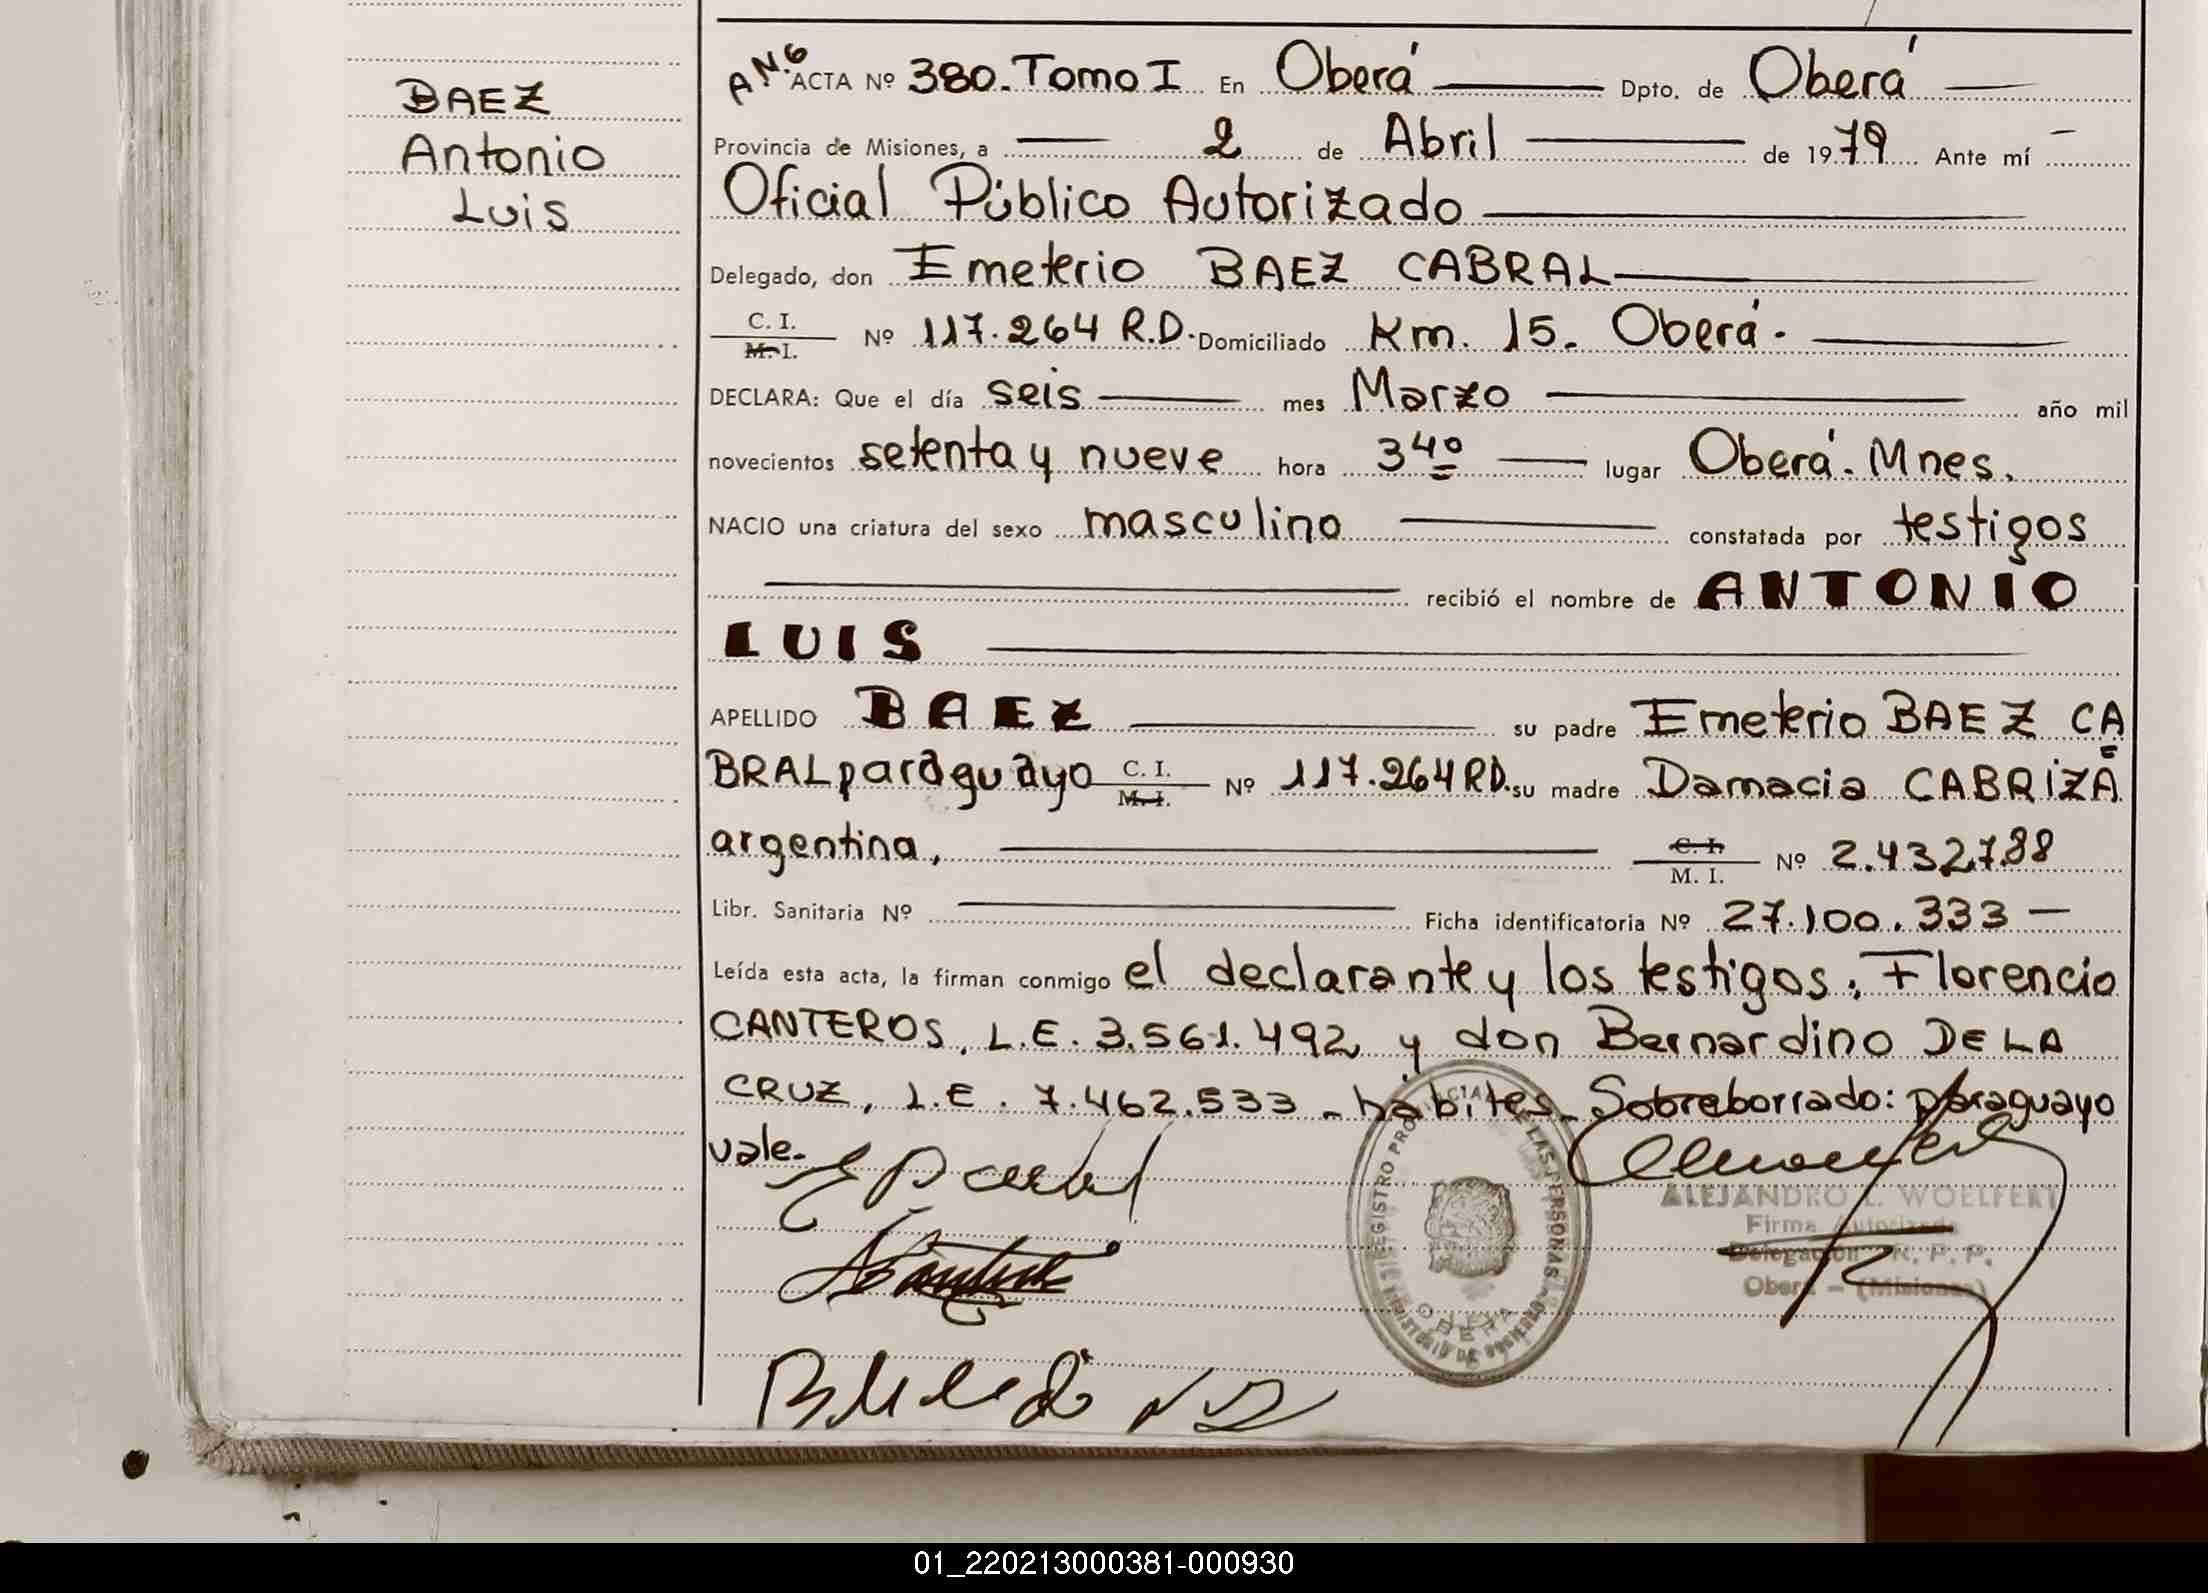 BAEZ
Antonio
Luis
ACTA Nº 380. Tomo I En Oberá Dpto. de Oberá
Provincia de Misiones, a 2 de Abril de 1979 Ante mí
Oficial Público Autorizado
Delegado, don Emeterio BAEZ CABRAL
C. I.
M. I. Nº 117.264 R.D. Domiciliado Km. 15. Oberá.
DECLARA: Que el día seis mes Marzo año mil
novecientos setenta y nueve hora 3 40 lugar Oberá. Mnes.
NACIO una criatura del sexo masculino constatada por testigos
recibió el nombre de ANTONIO
LUIS
APELLIDO BAEZ su padre Emeterio BAEZ CA
BRAL paraguayo C. I. M. I. Nº 117.264 RD. su madre Damacia CABRIZA
argentina, C. I. M. I. Nº 2.432.788
Libr. Sanitaria Nº Ficha identificatoria Nº 27.100.333
Leída esta acta, la firman conmigo el declarante y los testigos; Florencio
CANTEROS, L.E. 3.561.492 y don Bernardino DE LA
CRUZ, L.E. 7.462.533 - hábiles. Sobreborrado: paraguayo
vale.
REGISTRO PROVINCIAL DE LAS PERSONAS
OBERA
ALEJANDRO L. WOELFERT
Firma Autorizada
Delegación R. P. P.
Oberá - (Misiones)
01_220213000381-000930